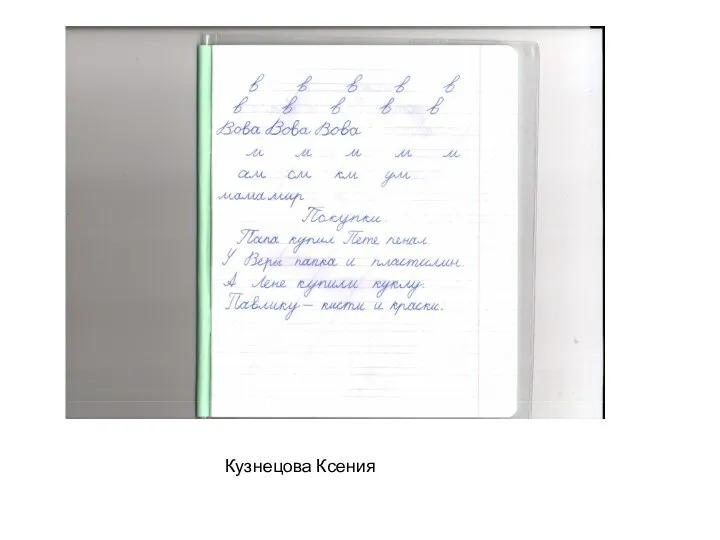 в в в в в
в в в в в
Вова Вова Вова
м м м м м
ам ом км ум
мама мир
Покупки
Папа купил Пете пенал.
У Веры папка и пластилин.
А Лене купили куклу.
Павлику – кисти и краски.
Кузнецова Ксения